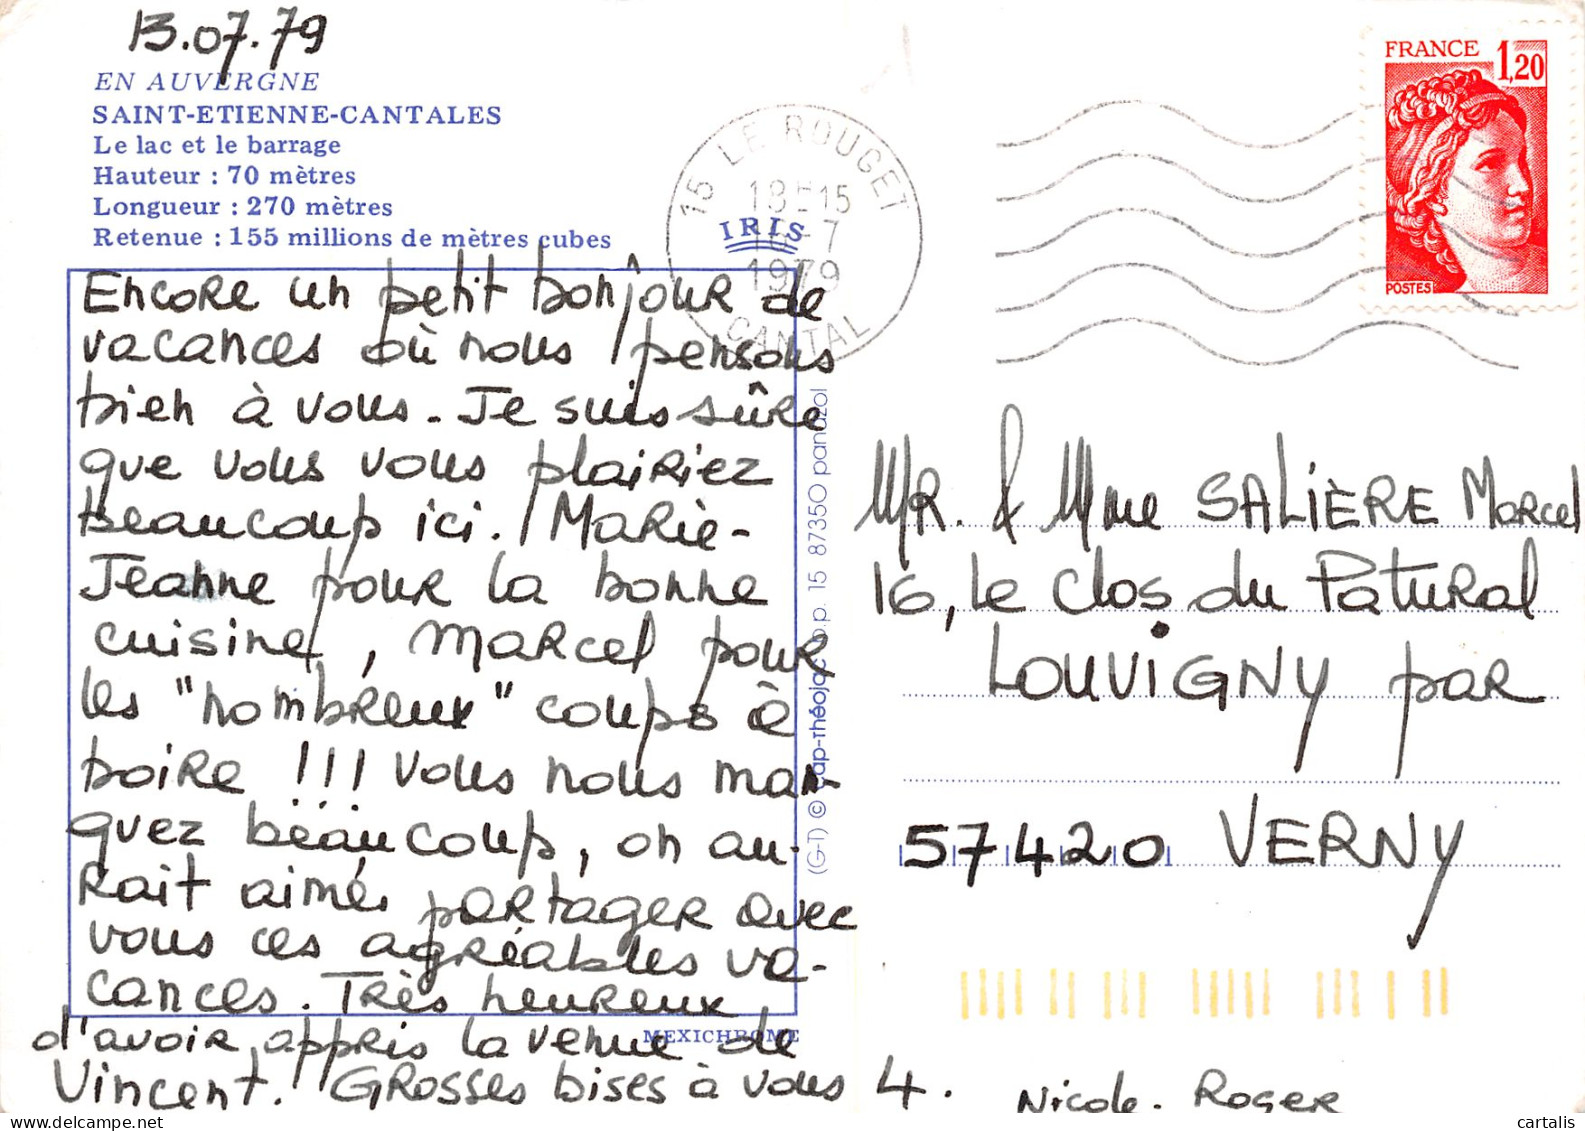 13.07.79
EN AUVERGNE
SAINT-ETIENNE-CANTALES
Le lac et le barrage
Hauteur : 70 mètres
Longueur : 270 mètres
Retenue : 155 millions de mètres cubes
Encore un petit bonjour de
vacances où nous pensons
bien à vous. Je suis sûre
que vous vous plairiez
beaucoup ici. Marie-
Jeanne pour la bonne
cuisine, Marcel pour
les "nombreux" coups à
boire !!! Vous nous man-
quez beaucoup, on au-
rait aimé partager avec
vous ces agréables va-
cances. Très heureux
d'avoir appris la venue de
Vincent. Grosses bises à vous 4.
Nicole. Roger
MEXICHROME
IRIS
15 LE ROUGET
18 15
7
1979
CANTAL
FRANCE 1,20
POSTES
(G-T) © cap-théojac b.p. 15 87350 panazol
MR. & Mme SALIÈRE Marcel
16, le Clos du Patural
LOUVIGNY par
57420 VERNY
cartalis